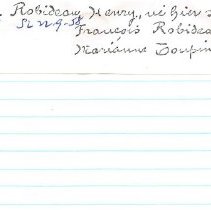 Robideau, Henry,
St. N-9-58
François Robidea
Marianne Toupin